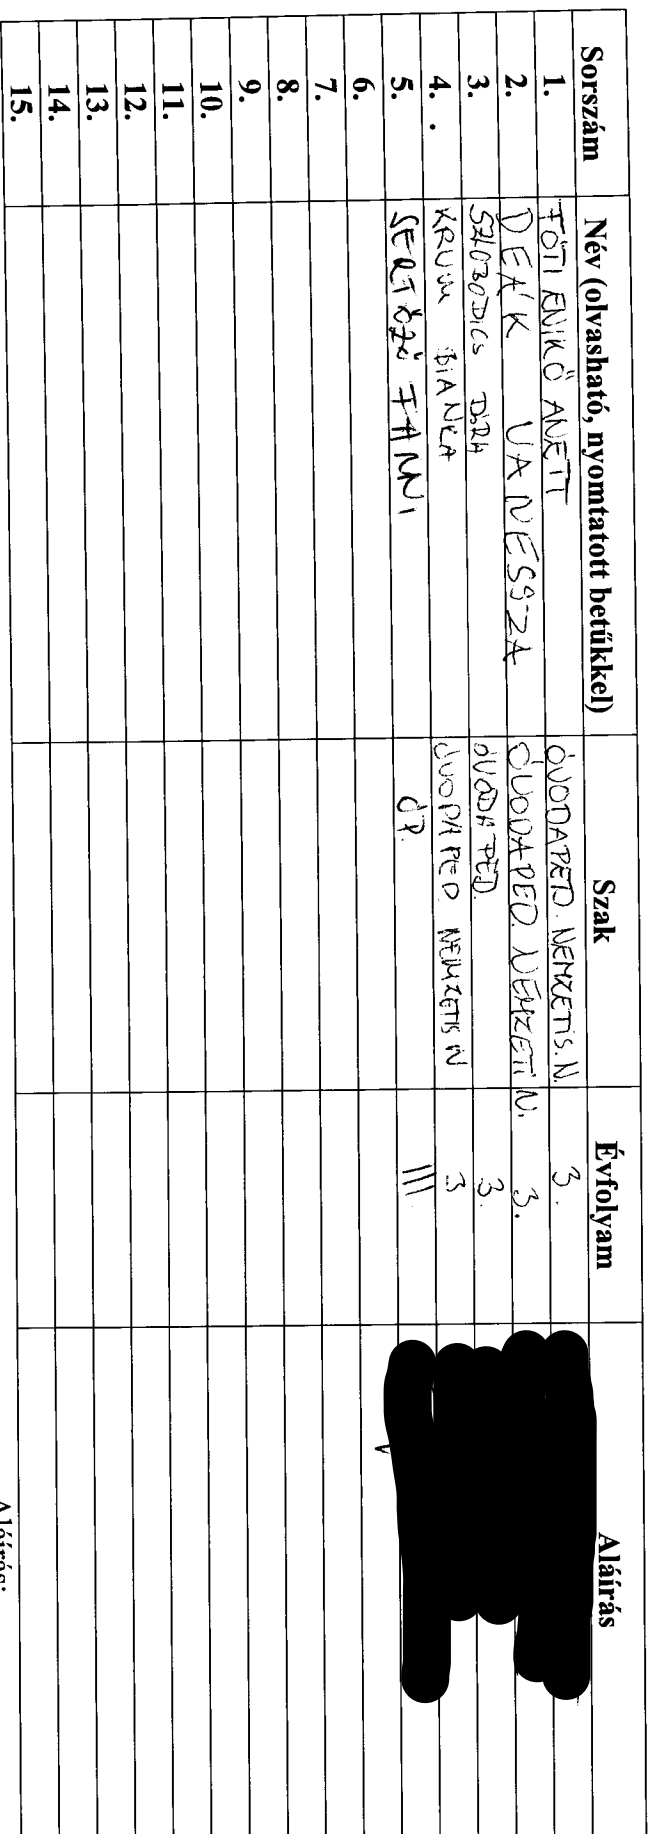 Sorszám Név (olvasható, nyomtatott betűkkel) Szak Évfolyam Aláírás
1. FÓTI ENIKŐ ANETT ÓVODAPED. NEMZETIS. N. 3.
2. DEÁK VANESSZA ÓVODAPED. NEMZETI N. 3.
3. SZLOBODICS DÓRA ÓVODAPED. 3.
4. . KRUM BIANKA ÓVODAPED NEMZETIS N 3
5. FANNI ÓP. III
6.
7.
8.
9.
10.
11.
12.
13.
14.
15.
Aláírás: